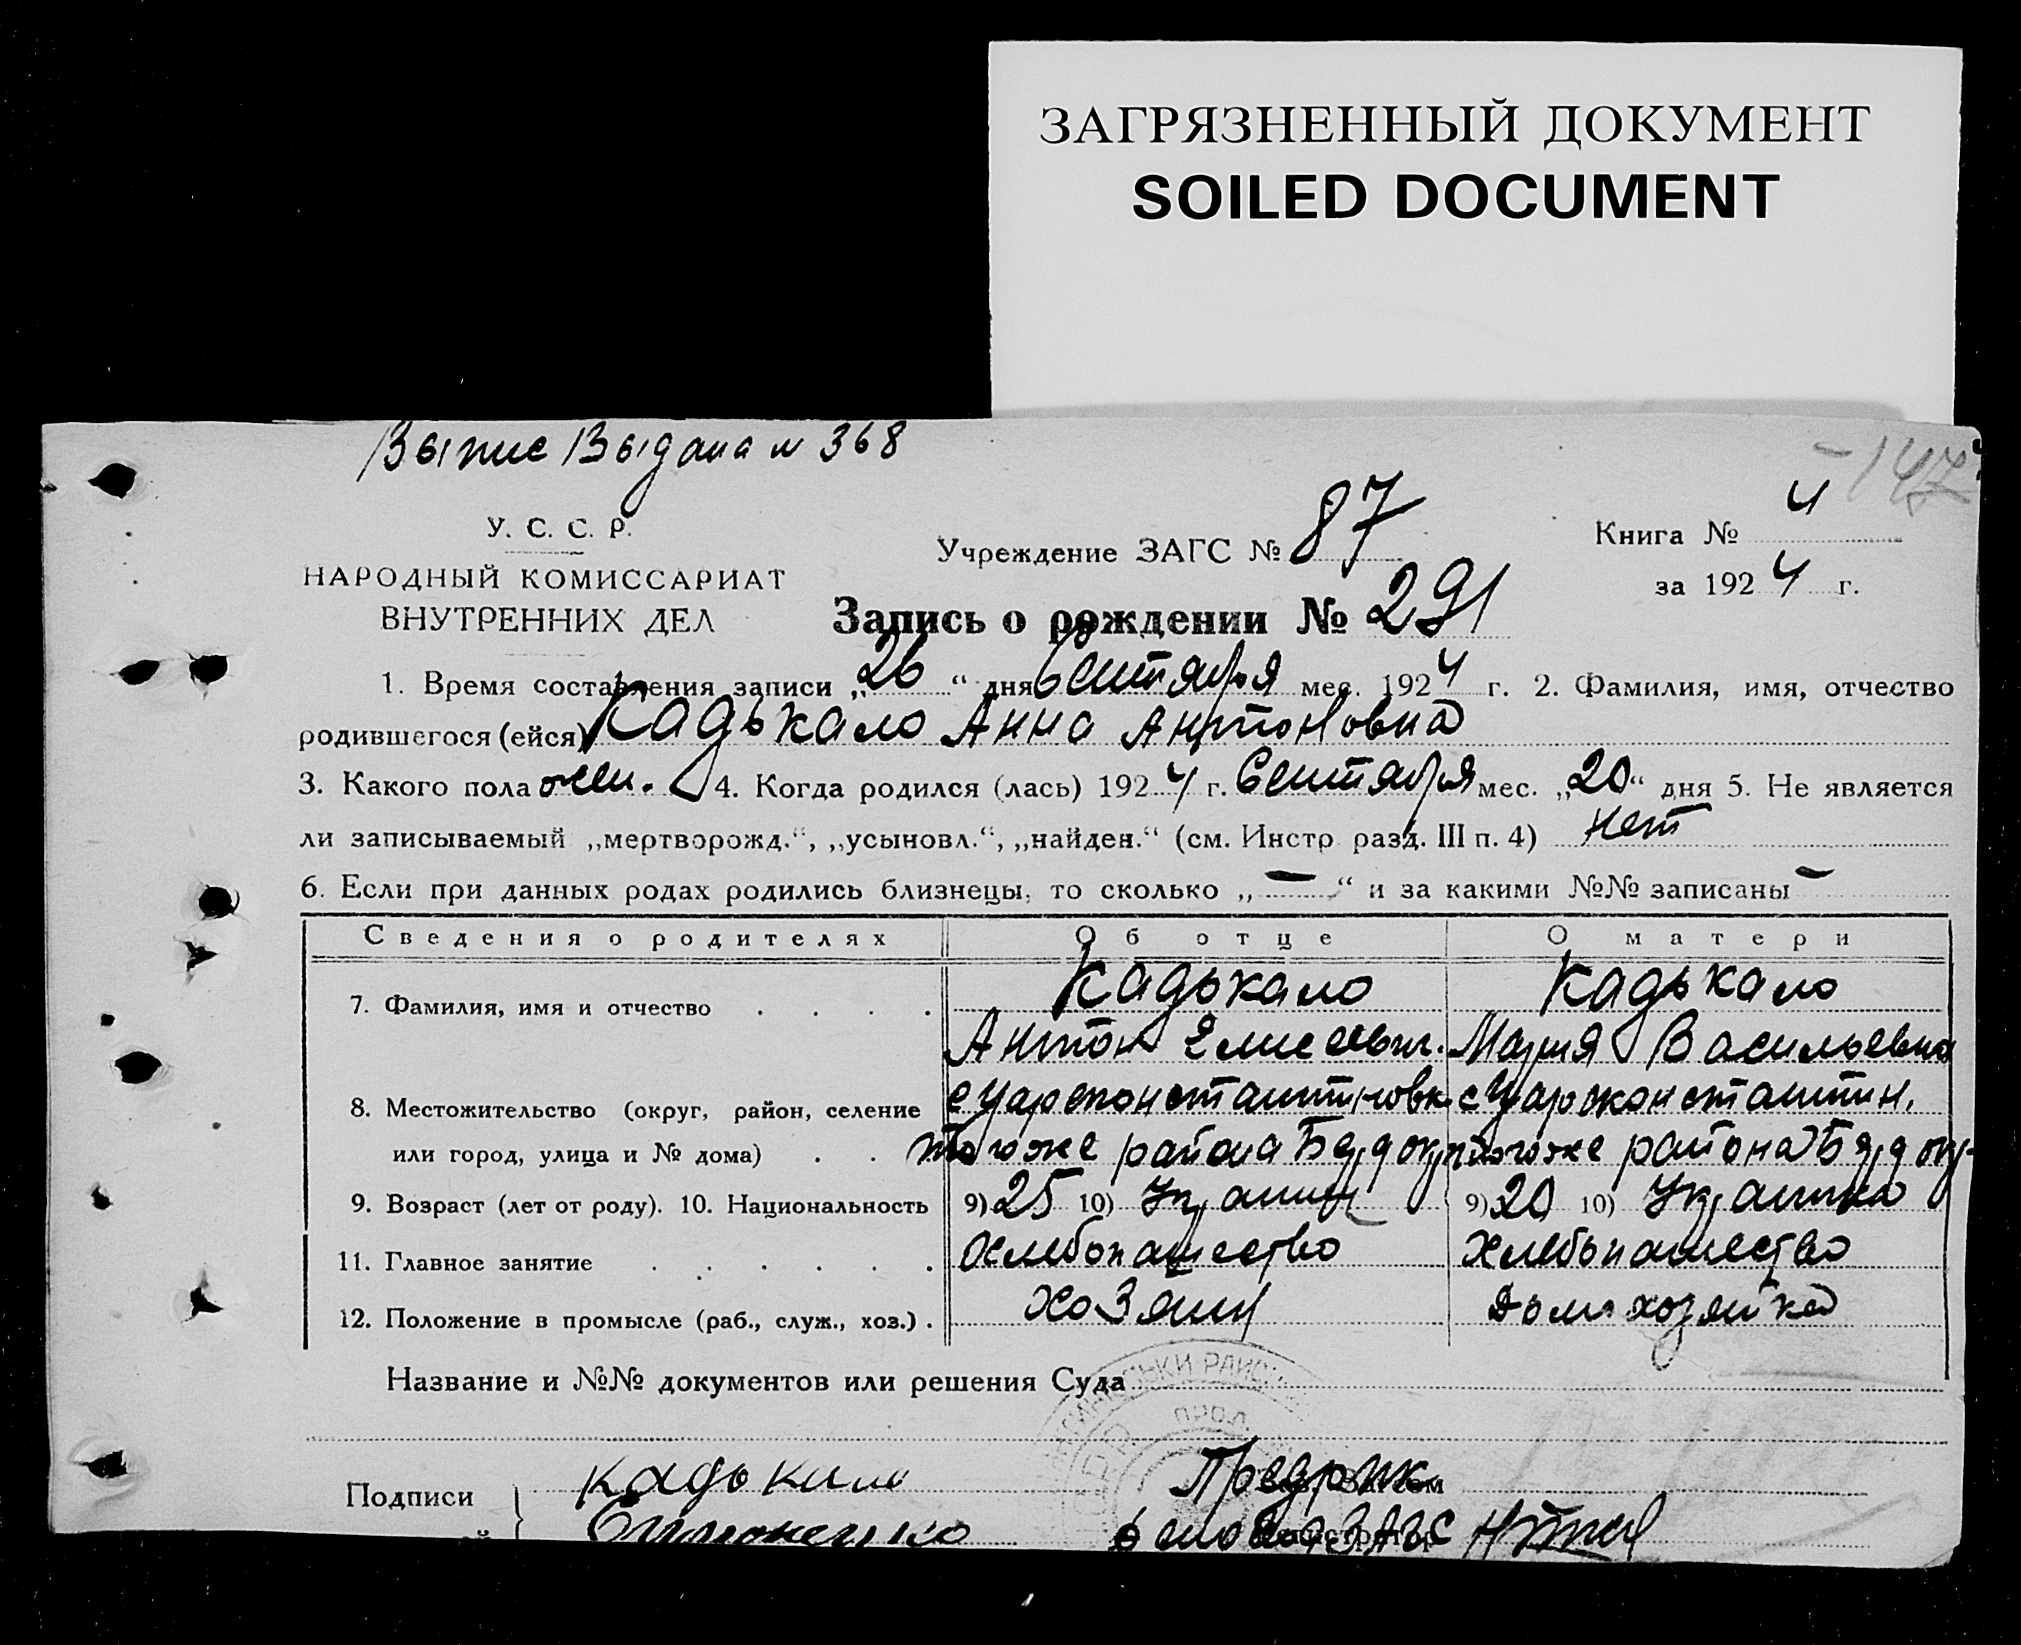 ЗАГРЯЗНЕННЫЙ ДОКУМЕНТ
SOILED DOCUMENT
Выпис Выдана № 368
147
У. С. С. Р.
НАРОДНЫЙ КОМИССАРИАТ
ВНУТРЕННИХ ДЕЛ
Учреждение ЗАГС № 87
Книга № 4
за 1924 г.
Запись о рождении № 291
1. Время составления записи „26“ дня Сентября мес. 1924 г. 2. Фамилия, имя, отчество
родившегося (ейся) Кадькало Анна Антоновна
3. Какого пола жен. 4. Когда родился (лась) 1924 г. Сентября мес. „20“ дня 5. Не является
ли записываемый „мертворожд.“, „усыновл.“, „найден.“ (см. Инстр разд. III п. 4) нет
6. Если при данных родах родились близнецы, то сколько „—“ и за какими №№ записаны —
Сведения о родителях Об отце О матери
7. Фамилия, имя и отчество Кадькало Кадькало
Антон Елисеевич. Мария Васильевна
8. Местожительство (округ, район, селение с Цареконстантиновк с Цароконстантин.
или город, улица и № дома) тогоже района Бердокр тогоже района Бердокр
9. Возраст (лет от роду). 10. Национальность 9) 25 10) Украинц 9) 20 10) Украинка
11. Главное занятие Хлебопашество Хлебопашество
12. Положение в промысле (раб., служ., хоз.) Хозяин Домохозяйка
Название и №№ документов или решения Суда
Подписи Кадькало
ЗАГС